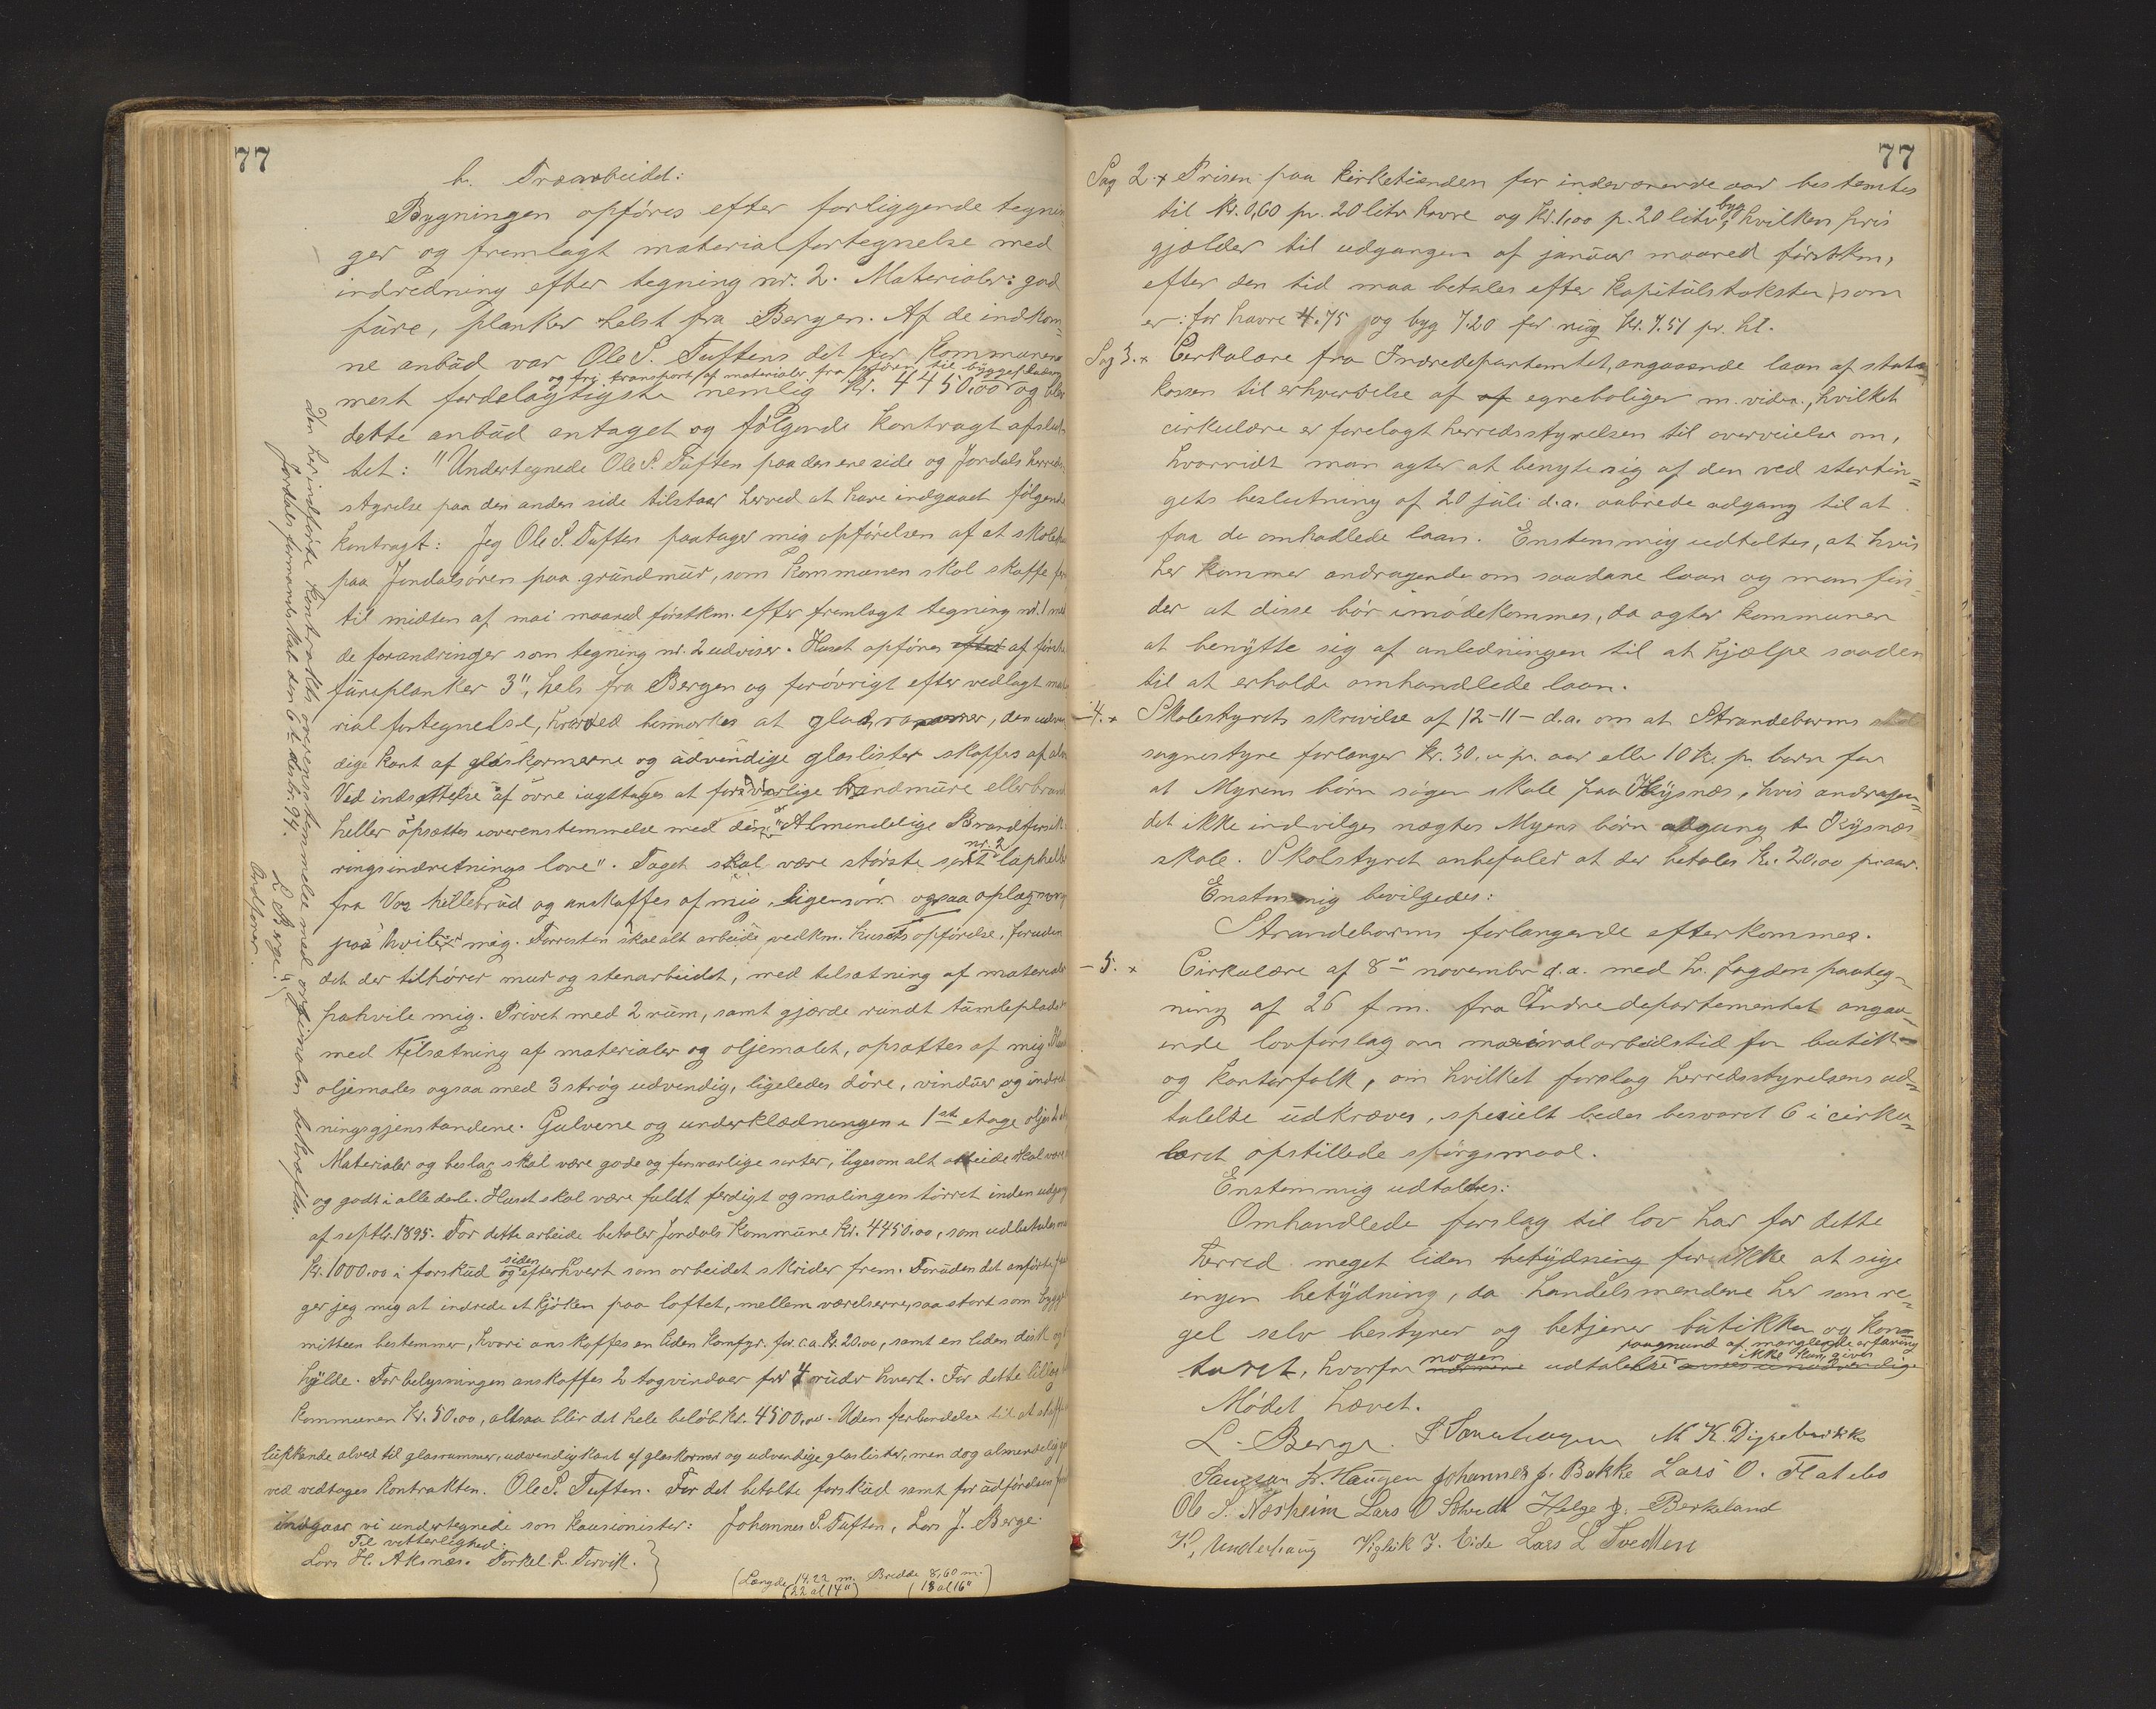 77
b. Træarbeidet:
Bygningen opføres efter forliggende tegnin
ger og fremlagt materialfortegnelse med
indredning efter tegning nr. 2. Materialer: god
fure, planker helst fra Bergen. Af de indkom=
ne anbud var Ole S. Tuftens det for kommunen
og fri transport af materialer fra sjøen til bygges
mest fordelagtigste nemlig Kr. 4450,00 og blev
dette anbud antaget og følgende kontragt afslut
tet: "Undertegnede Ole S. Tuften paa den ene side og Jondals herreds
styrelse paa den anden side tilstaar herved at have indgaaet følgende
kontragt: Jeg Ole S. Tuften paatager mig opførelsen af et skole
paa Jondalsøren paa grundmur, som kommunen skal skaffe
til midten af mai maaned førstkm. efter fremlagt tegning nr. 1 med
de forandringer som tegning nr. 2 udviser. Huset opføres efter af første
fureplanker 3", hels fra Bergen og forøvrigt efter vedlagt mate
rialfortegnelse, hvorved bemærkes at glasrammer, den udven
dige kant af glaskarmerne og udvendige glaslister skaffes af alv
Ved indsættelse af ovne iagttages at forsvarlige brandmure eller brand
heller opsættes i overenstemmelse med den "Almendelige Brandforsik
ringsindretnings love". Taget skal være største sort nr. 2 laphelle
fra Vos hellebrud og anskaffes af mig, ligesom ogsaa oplægning
paa hviler mig. Forresten skal alt arbeide vedkm. husets opførelse, foruden
det der tilhører mur og stenarbeidet, med tilsætning af materialer
pahvile mig. Privet med 2 rum, samt gjærde rundt tumlepladsen
med tilsætning af materialer og oljemalet, opsættes af mig. Hus
oljemales ogsaa med 3 strøg udvendig, ligeledes døre, vinduer og indred
ningsgjenstandene. Gulvene og underklædningen i 1ste etage oljes 2
Materialer og beslag skal være gode og forsvarlige sorter, ligesom alt arbeide skal være
og godt i alle dele. Huset skal være fuldt færdigt og malingen tørret inden udgang
af septbr. 1895. For dette arbeide betaler Jondals Kommune Kr. 4450,00, som udbetales med
Kr. 1000,00 i forskud og siden efterhvert som arbeidet skrider frem. Foruden det anførte
ger jeg mig at indrede et kjøken paa loftet, mellem værelserne, saa stort som bygge
mitteen bestemmer, hvori anskaffes en liden komfyr for c.a. Kr. 20,00, samt en liden disk og
hylde. For belysningen anskaffes 2 tagvinduer for 4 ruder hvert. For dette tillæg
kommunen Kr. 50,00, altsaa blir det hele beløb Kr. 4500,00. Uden forbindelse til at skaffe
lukkende alved til glasrammer, udvendig kant af glaskarmer og udvendige glaslister, men dog almendelig
ved vedtages kontrakten. Ole S. Tuften. For det betalte forskud samt for udførelsen
indgaar vi undertegnede som kausionister: Johannes S. Tuften, Lars J. Berge.
Til vitterlighed:
Lars H. Aksnæs. Torkel L. Torvik.
(Længde 14.22 m. Bredde 8,60 m.)
(22 al 14") (13 al 16")
Den her indførte kontrakts overensstemmelse med originalen bekræftes.
Jondals formandskab den 6te desbr. 94.
L. Berge
Ordfører.
77
Sag 2. x Prisen paa kirketienden for indeværende aar bestemtes
til Kr. 0,60 pr. 20 liter havre og Kr. 1,00 p. 20 liter byg; hvilken pris
gjælder til udgangen af januar maaned førstkm.,
efter den tid maa betales efter kapitulstaksten som
er: for havre 4.75 og byg 7.20 for rug Kr. 7.51 pr. hl.
Sag 3. x Cerkulære fra Indredepartemtet, angaaende laan af stats
kassen til erhvervelse af af egneboliger m. videre, hvilket
cirkulære er forelagt herredsstyrelsen til overveielse om,
hvorvidt man agter at benyte sig af den ved stortin=
gets beslutning af 20 juli d.a. aabnede adgang til at
faa de omhadlede laan. Enstemmig udtaltes, at hvis
her kommer andragende om saadane laan og man fin=
der at disse bør imødekommes, da agter kommunen
at benytte sig af anledningen til at hjælpe saaden
til at erholde omhandlede laan.
- 4. x Skolestyrets skrivelse af 12-11- d.a. om at Strandebarms skole
sognestyre forlanger Kr. 30,00 pr. aar eller 10 Kr. pr. barn for
at Myrens børn søger skole paa Kysnæs, hvis andragen=
det ikke indvilges nægtes Myrens børn adgang t. Kysnæs
skole. Skolstyret anbefaler at der betales Kr. 20,00 pr. aar.
Enstemmig bevilgedes:
Strandebarms forlangende efterkommes.
- 5. x Cirkulære af 8de november d.a. med hr. fogdens paateg=
ning af 26 f.m. fra Indredepartementet angaa=
ende lovforslag om maximalarbeidstid for butik=
og kontorfolk, om hvilket forslag herredsstyrelsens ud=
talelse udkræves, specielt bedes besvaret 6 i cirku=
læret opstillede spørgsmaal.
Enstemmig udtaltes:
Omhandlede forslag til lov har for dette
herred meget liden betydning for ikke at sige
ingen betydning, da handelsmendene her som re=
gel selv bestyrer og betjener butikken og kon=
paagrund af manglende erfaring
toret, hvorfor nogen udtalelse ikke kan gives
Mødet hævet.
L. Berge. S Samuhaugen M K. Digrebrikke
Samson Hr. Haugen Johannes J. Bakke Lars O. Flatebo
Ole S. Nærheim Lars O Solvedt Helge J. Berkeland
K. Underhaug Vighik J. Eide Lars L Tvedten